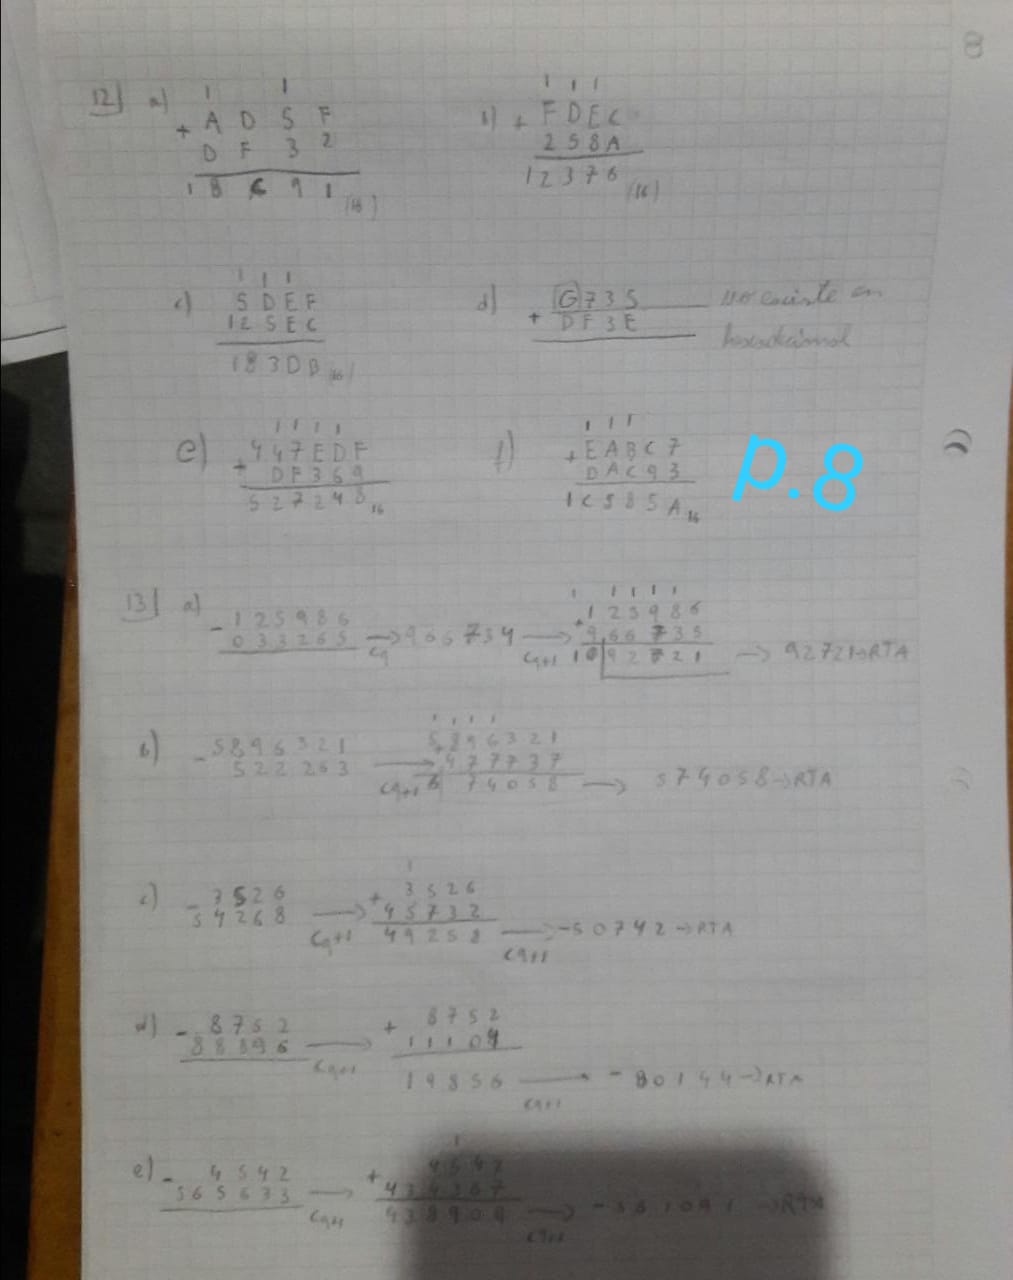 8
12) a) 1 1
+ A D 5 F
D F 3 2
1 8 C 9 1 (16)
b) 1 1 1
+ F D E C
2 5 8 A
1 2 3 7 6 (16)
c) 1 1 1
5 D E F
1 2 5 E C
1 8 3 D B (16)
d) + G 7 3 5 no existe en
D F 3 E hexadecimal
e) 1 1 1 1
+ 4 4 7 E D F
D F 3 6 9
5 2 7 2 4 8 16
f) 1 1 1
+ E A B C 7
D A C 9 3
1 C 5 8 5 A 16
p.8
13) a) - 1 2 5 9 8 6
0 3 3 2 6 5 → C9 9 6 6 7 3 4 → C9+1
1 1 1 1 1
+ 1 2 5 9 8 6
9 6 6 7 3 5
1 0 9 2 7 2 1 → 92721→RTA
b) - 5 8 9 6 3 2 1
5 2 2 2 6 3 → C9+1
1 1 1 1
+ 5 8 9 6 3 2 1
4 7 7 7 3 7
7 4 0 5 8 → 5 7 4 0 5 8→RTA
c) - 3 5 2 6
5 4 2 6 8 → C9+1
1
+ 3 5 2 6
4 5 7 3 2
4 9 2 5 8 → C9+1 - 5 0 7 4 2→RTA
d) - 8 7 5 2
8 8 8 9 6 → C9+1
+ 8 7 5 2
1 1 1 0 4
1 9 8 5 6 → C9+1 - 8 0 1 4 4→RTA
e) - 4 5 4 2
5 6 5 6 3 3 → C9+1
1
+ 4 5 4 2
4 3 4 3 6 7
4 3 8 9 0 9 → C9+1 →RTA